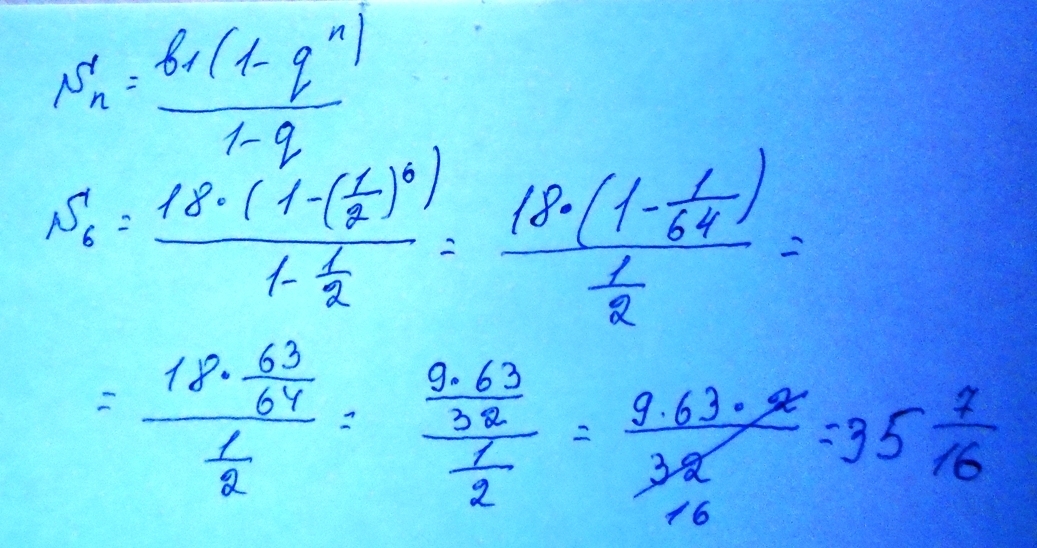 Sn = b1(1-q^n) / 1-q
S6 = 18·(1-(1/2)^6) / 1-1/2 = 18·(1-1/64) / 1/2 =
= 18·63/64 / 1/2 = 9·63/32 / 1/2 = 9·63·2 / 32 16 = 35 7/16